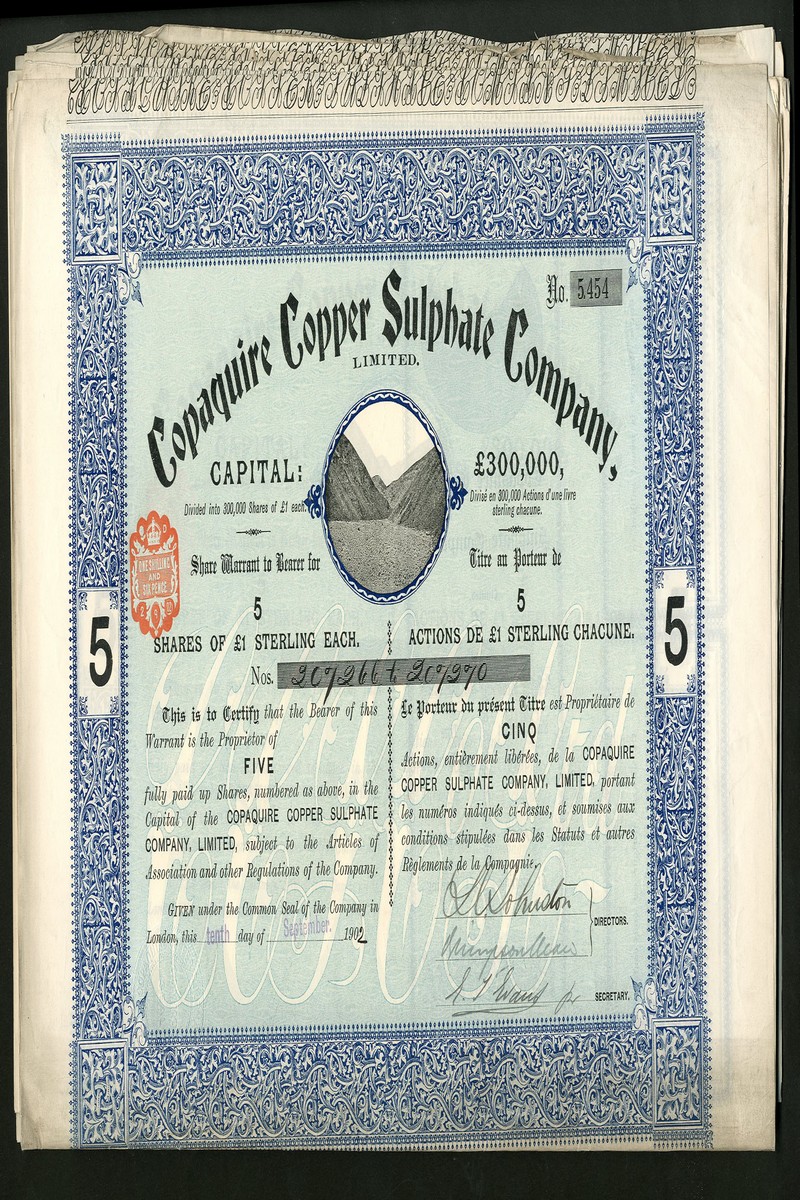 No. 5.454
Copaquire Copper Sulphate Company,
LIMITED.
CAPITAL: £300,000,
Divided into 300,000 Shares of £1 each.
Divisé en 300,000 Actions d'une livre
sterling chacune.
ONE SHILLING
AND
SIX PENCE
Share Warrant to Bearer for
5
SHARES OF £1 STERLING EACH.
Titre au Porteur de
5
ACTIONS DE £1 STERLING CHACUNE.
Nos. 207266 t 207270
5
5
This is to Certify that the Bearer of this
Warrant is the Proprietor of
FIVE
fully paid up Shares, numbered as above, in the
Capital of the COPAQUIRE COPPER SULPHATE
COMPANY, LIMITED, subject to the Articles of
Association and other Regulations of the Company.
GIVEN under the Common Seal of the Company in
London, this tenth day of September. 1902
Le Porteur du présent Titre est Propriétaire de
CINQ
Actions, entièrement libérées, de la COPAQUIRE
COPPER SULPHATE COMPANY, LIMITED, portant
les numéros indiqués ci-dessus, et soumises aux
conditions stipulées dans les Statuts et autres
Règlements de la Compagnie.
Johnston
DIRECTORS.
Evans
SECRETARY.
5
5